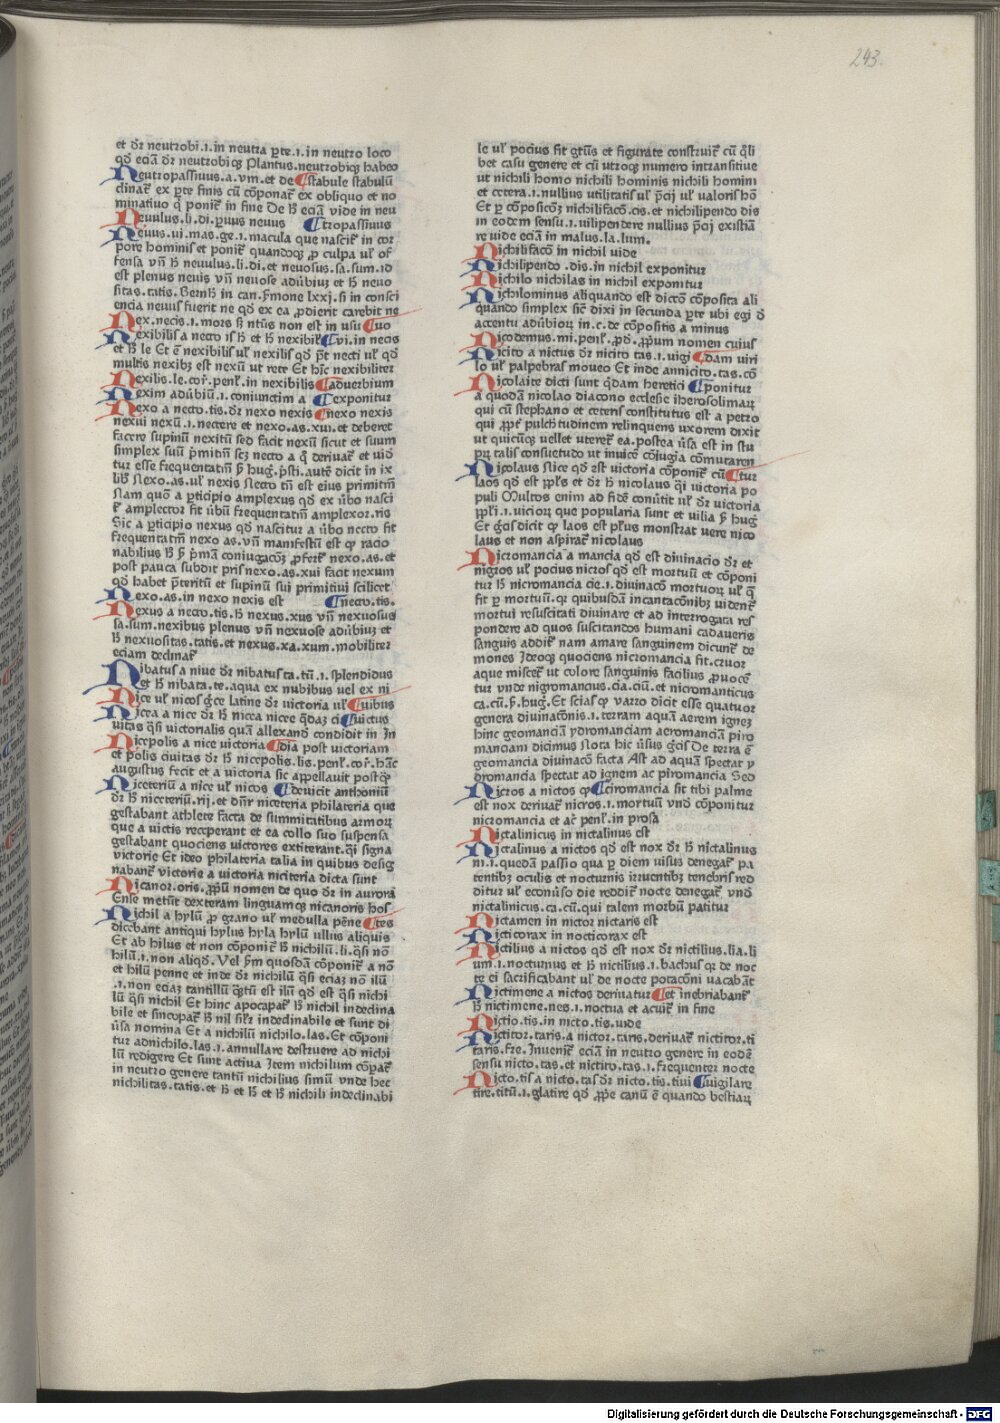 243.
et dr̄ neutrobi.i.in neutra ꝑte.i.in neutro loco
qd̄ eciā dr̄ neutrobiqꝫ Plantus.neutrobiqꝫ habeo
Neutropassiuus.a.vm.et de ¶stabule stabulū
clinat᷑ ex ꝑte finis cū cōponat᷑ ex obliquo et no
minatiuo q̄ ponit᷑ in fine De h̄ eciā vide in neu
Neuulus.li.di.ꝑuus neuus ¶tropassiuus
Neuus.ui.mas.ge.i.macula que nascit᷑ in cor
pore hominis et ponit᷑ quandoqꝫ ꝓ culpa ul̄ of
fensa vn̄ h̄ neuulus.li.di.et neuosus.sa.sum.id
est plenus neuis vn̄ neuose adūbiū et h̄ neuo
sitas.tatis.Bernh̄ in can.ẜmone lxxj.si in consci
encia neuus fuerit ne qd̄ ex ea ꝓdierit carebit ne
Nex.necis.i.mors sꝫ nt̄us non est in usu ¶uo
Nexibilis a necto is h̄ et h̄ nexibil᷑ ¶vi.in necis
et h̄ le Et ē nexibil᷑ ul̄ nexilis qd̄ pn̄t necti ul̄ qd̄
multis nexibꝫ est nexū ut rete Et hīc nexibiliter
Nexilis.le.cor̄.penl̄.in nexibilis ¶aduerbium
Nexim adūbiū.i.coniunctim a ¶exponitur
Nexo a necto.tis.dr̄ nexo nexis ¶nexo nexis
nexui nexū.i.nectere et nexo.as.xui.et deberet
facere supinū nexitū sed facit nexū sicut et suum
simplex suū p̄mitiū scꝫ necto a q̄ deriuat᷑ et vid̄
tur esse frequentatiū ẜ huḡ.p̄sti.autē dicit in ix
lib̄ Nexo.as.ul̄ nexis Necto tn̄ est eius primitiū
Nam quō a ꝑticipio amplexus qd̄ ex ūbo nasci
t᷑ amplector fit ūbū frequentatiū amplexor.ris
Sic a ꝑticipio nexus qd̄ nascitur a ūbo necto fit
frequentatiū nexo as.vn̄ manifestū est qꝫ racio
nabilius h̄ ẜ p̄mā coniugacōꝫ ꝓfert᷑ nexo.as.et
post pauca subdit pris nexo.as.xui facit nexum
qd̄ habet p̄teritū et supinū sui primitiui scilicet
Nexo.as.in nexo nexis est ¶necto.tis.
Nexus a necto.tis.h̄ nexus.xus vn̄ nexuosus
sa.sum.nexibus plenus vn̄ nexuose adūbiuꝫ et
h̄ nexuositas.tatis.et nexus.xa.xum.mobiliter
eciam declinat᷑
Nibatus a niue dr̄ nibatus ta.tū.i.splendidus
et h̄ nibata.te.aqua ex nubibus uel ex ni
Nice ul̄ nicos g̓ce latine dr̄ victoria ul̄ ¶uibus
Nicea a nice dr̄ h̄ nicea nicee q̄daꝫ ci ¶uictus
uitas q̄si victorialis quā allexand̄ condidit in In
Nicepolis a nice victoria ¶dia post victoriam
et polis ciuitas dr̄ h̄ nicepolis.lis.penl̄.cor̄.hāc
augustus fecit et a victoria sic appellauit postꝙ̄
Niceteriū a nice ul̄ nicos ¶deuicit anthoniū
dr̄ h̄ niceteriū.rij.et dn̄r niceteria philateria que
gestabant athlete facta de summitatibus armoꝝ
que a uictis receperant et ea collo suo suspensa
gestabant quociens victores extiterant.q̄i signa
victorie Et ideo philateria talia in quibus desig
nabant᷑ victorie a victoria niciteria dicta sunt
Nicanor.oris.ꝓpū nomen de quo dr̄ in aurora
Ense metūt dexteram linguamqꝫ nicanoris hos
Nichil a hylū ꝓ grano ul̄ medulla pēne ¶tes
dicebant antiqui hylus hyla hylū ullus aliquis
Et ab hilus et non cōponit᷑ h̄ nichilū.li.q̄si nō
hilū.i.non aliqd̄.Vel ẜm quosdā cōponit᷑ a nō
et hilū penne et inde dr̄ nichilū q̄si eciaꝫ nō ilū
.i.non eciaꝫ tantillū q̄ntū est ilū qd̄ est q̄si nichi
lū q̄si nichil Et hinc apocapat᷑ h̄ nichil indeclina
bile et sincopat᷑ h̄ nil sil̄r indeclinabile et sunt di
ūsa nomina Et a nichilū nichilo.las.Et cōponi
tur adnichilo.las.i.annullare destruere ad nichi
lū redigere Et sunt actiua Item nichilum cōpat᷑
in neutro genere tantū nichilius simiū vnde hec
nichilitas.tatis.et h̄ et h̄ et h̄ nichili indeclinabi
le ul̄ pocius fit gt̄ūs et figurate construit᷑ cū q̄li
bet casu genere et cū utroqꝫ numero intransitiue
ut nichili homo nichili hominis nichili homini
et cetera.i.nullius utilitatis ul̄ p̄cij ul̄ valoris hō
Et ꝑ cōposicōꝫ nichilifacō.cis.et nichilipendo dis
in eodem sensu.i.uilipendere nullius p̄cij existia
re vide eciā in malus.la.lum.
Nichilifacō in nichil vide
Nichilipendo .dis.in nichil exponitur
Nichilo nichilas in nichil exponitur
Nichilominus aliquando est dictō cōposita ali
quando simplex sic̄ dixi in secunda ꝑte ubi egi d̄
accentu adūbioꝝ in.c.de cōpositis a minus
Nicodemus.mi.penl̄.ꝓd̄.ꝓpum nomen cuius
Nicito a nictus dr̄ nicito tas.i.uigi ¶dam uiri
lo ul̄ palpebras moueo Et inde annicito.tas.cō
Nicolaite dicti sunt q̄dam heretici ¶ponitur
a quodā nicolao diacono ecclesie iherosolimaꝝ
qui cū stephano et ceteris constitutus est a petro
qui ꝓpt᷑ pulch̄tudinem relinquens uxorem dixit
ut quicūqꝫ uellet uteret᷑ ea.postea ūsa est in stu
pꝝ talis consuetudo ut inuicē cōiugia cōmutaren
Nicolaus Nice qd̄ est victoria cōponit᷑ cū ¶tur
laos qd̄ est ppl̄s et dr̄ h̄ nicolaus q̄i victoria po
puli Multos enim ad fidē cōuīt ul̄ dr̄ victoria
ppl̄i.i.uicioꝝ que popularia sunt et uilia ẜ huḡ
Et g̓cis dicit qꝫ laos est pl̄us monstrat vere nico
laus et non aspirat᷑ nicolaus
Nicromancia a mancia qd̄ est diuinacio dr̄ et
nigros ul̄ pocius nicros qd̄ est mortuū et cōponi
tur h̄ nicromancia cie.i.diuinacō mortuoꝝ ul̄ q̄
fit ꝑ mortuū.qꝫ quibusdā incantacōnibꝫ uident᷑
mortui resuscitati diuinare et ad interrogata res
pondere ad quos suscitandos humani cadaueris
sanguis addit᷑ nam amare sanguinem dicunt᷑ de
mones Ideoqꝫ quociens nicromancia fit.cruor
aque miscet᷑ ut colore sanguinis facilius ꝓuocē
tur vnde nigromancus.cia.ciū.et nicromanticus
ca.cū.ẜ.huḡ.Et scias qꝫ varro dicit esse quatuor
genera diuinacōnis.i.terram aquā aerem igneꝫ
hinc geomanciā ydromanciam aeromanciā piro
manciam dicimus Nota hic ūsus g̓cis De terra ē
geomancia diuinacō facta Ast ad aquā spectat y
dromancia spectat ad ignem ac piromancia Sed
Nicros a nictos qꝫ ¶ciromancia sit tibi palme
est nox deriuat᷑ nicros.i.mortuū vnd̄ cōponitur
nicromancia et ac̄ penl̄.in prosa
Nictalinicus in nictalinus est
Nictalinus a nictos qd̄ est nox dr̄ h̄ nictalinus
ni.i.quedā passio qua ꝑ diem uisus denegat᷑ pa
tentibꝫ oculis et nocturnis irruentibꝫ tenebris red
ditur ul̄ econūso die reddit᷑ nocte denegat᷑ vnd̄
nictalinicus.ca.cū.qui talem morbū patitur
Nictamen in nictor nictaris est
Nicticorax in nocticorax est
Nictilius a nictos qd̄ est nox dr̄ nictilius.lia.li
um.i.nocturnus et h̄ nictilius.i.bachus qꝫ de noc
te ei sacrificabant ul̄ de nocte potacōni vacabāt
Nictimene a nictos deriuatur ¶et inebriabant᷑
h̄ nictimene.nes.i.noctua et acuit᷑ in fine
Nictio.tis.in nicto.tis.uide
Nictitor.taris.a nictor.taris.deriuat᷑ nictitor.ti
taris.Fre.Inuenit᷑ eciā in neutro genere in eodē
sensu nicto.tas.et nictito.tas.i.frequenter nocte
Nicto.tis a nicto.tas dr̄ nicto.tis.tiui ¶uigilare
tire.titū.i.glatire qd̄ ꝓpe canū ē quando bestiaꝝ
Digitalisierung gefördert durch die Deutsche Forschungsgemeinschaft - DFG